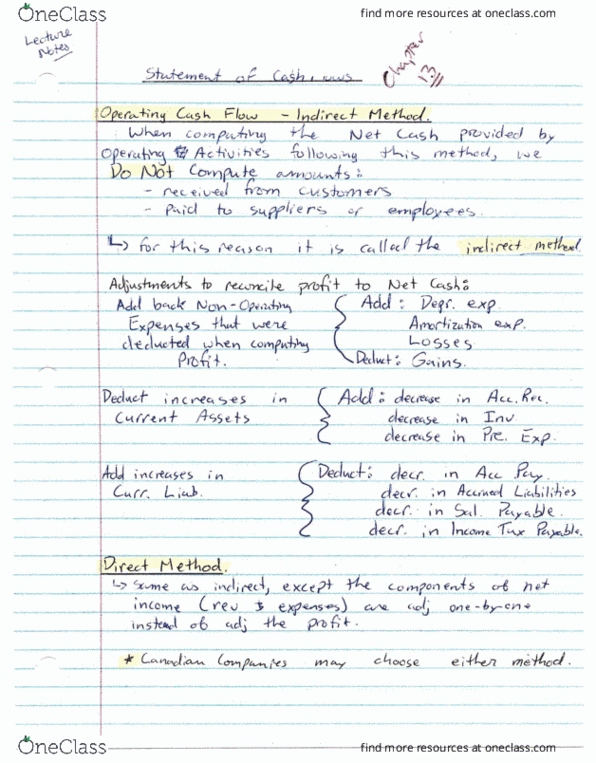 OneClass
find more resources at oneclass.com
Lecture
Notes
Chapter
13
Statement of Cash
Operating Cash Flow - Indirect Method.
When computing the Net Cash provided by
Operating Activities following this method, we
Do Not Compute amounts:
- received from customers
- Paid to suppliers or employees.
↳ for this reason it is called the indirect method
Adjustments to reconcile profit to Net Cash:
Add back Non-Operating
Expenses that were
deducted when computing
Profit.
Add: Depr. exp.
Amortization exp.
Losses
Deduct: Gains.
Deduct increases in
Current Assets
Add: decrease in Acc. Rec.
decrease in Inv
decrease in Pre. Exp.
Add increases in
Curr. Liab.
Deduct: decr. in Acc Pay.
decr. in Accrued Liabilities
decr. in Sal. Payable.
decr. in Income Tax Payable.
Direct Method.
↳ same as indirect, except the components of net
income (rev & expenses) are adj one-by-one
instead of adj the profit.
* Canadian Companies may choose either method.
OneClass
find more resources at oneclass.com